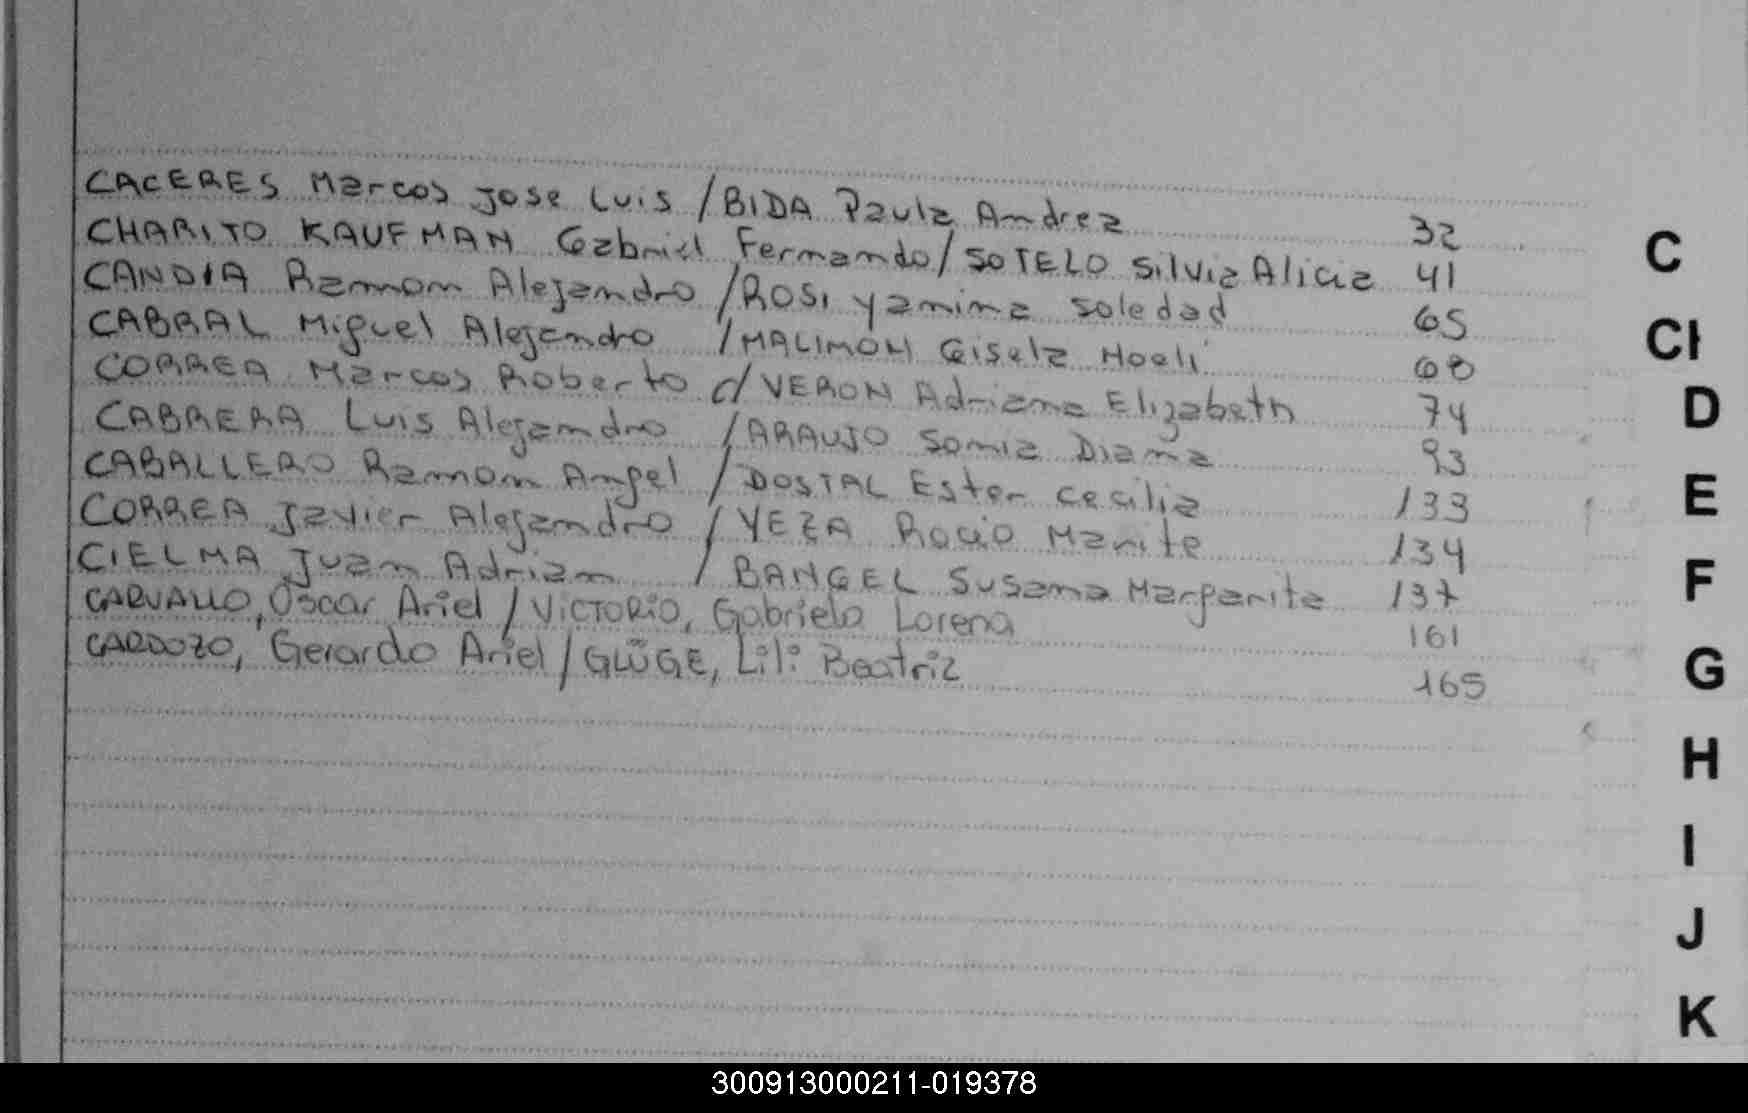 CACERES Marcos Jose Luis / BIDA Paula Andrea 32
CHARITO KAUFMAN Gabriel Fernando / SOTELO Silvia Alicia 41
CANDIA Ramon Alejandro / ROSI Yamina Soledad 65
CABRAL Miguel Alejandro / MALIMON Gisela Noeli 68
CORREA Marcos Roberto c/ VERON Adriana Elizabeth 74
CABRERA Luis Alejandro / ARAUJO Sonia Diana 93
CABALLERO Ramon Angel / DOSTAL Ester Cecilia 133
CORREA Javier Alejandro / YEZA Rocio Marite 134
CIELMA Juan Adrian / BANGEL Susana Margarita 137
CARVALLO, Oscar Ariel / VICTORIO, Gabriela Lorena 161
CARDOZO, Gerardo Ariel / GLÜGE, Lili Beatriz 165
C
CH
D
E
F
G
H
I
J
K
300913000211-019378